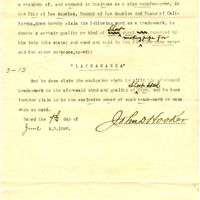 a resident of, and engaged in business as a pipe manufacturer, in
the City of Los Angeles, County of Los Angeles and State of Cali-
fornia, does hereby claim the following word as a trade-mark, to
denote a certain quality or kind of sheet steel imported by
him into this state; and used and sold by him for making pipe for
and for other purposes, to-wit:
"LACKAWANNA"
3-13
And he does claim the exclusive right to the aforesaid
trade-mark to the aforesaid kind and quality of sheet steel, and he does
further claim to be the exclusive owner of such trade-mark or name
when used.
Dated the day of
June A.D.
John D. Hooker